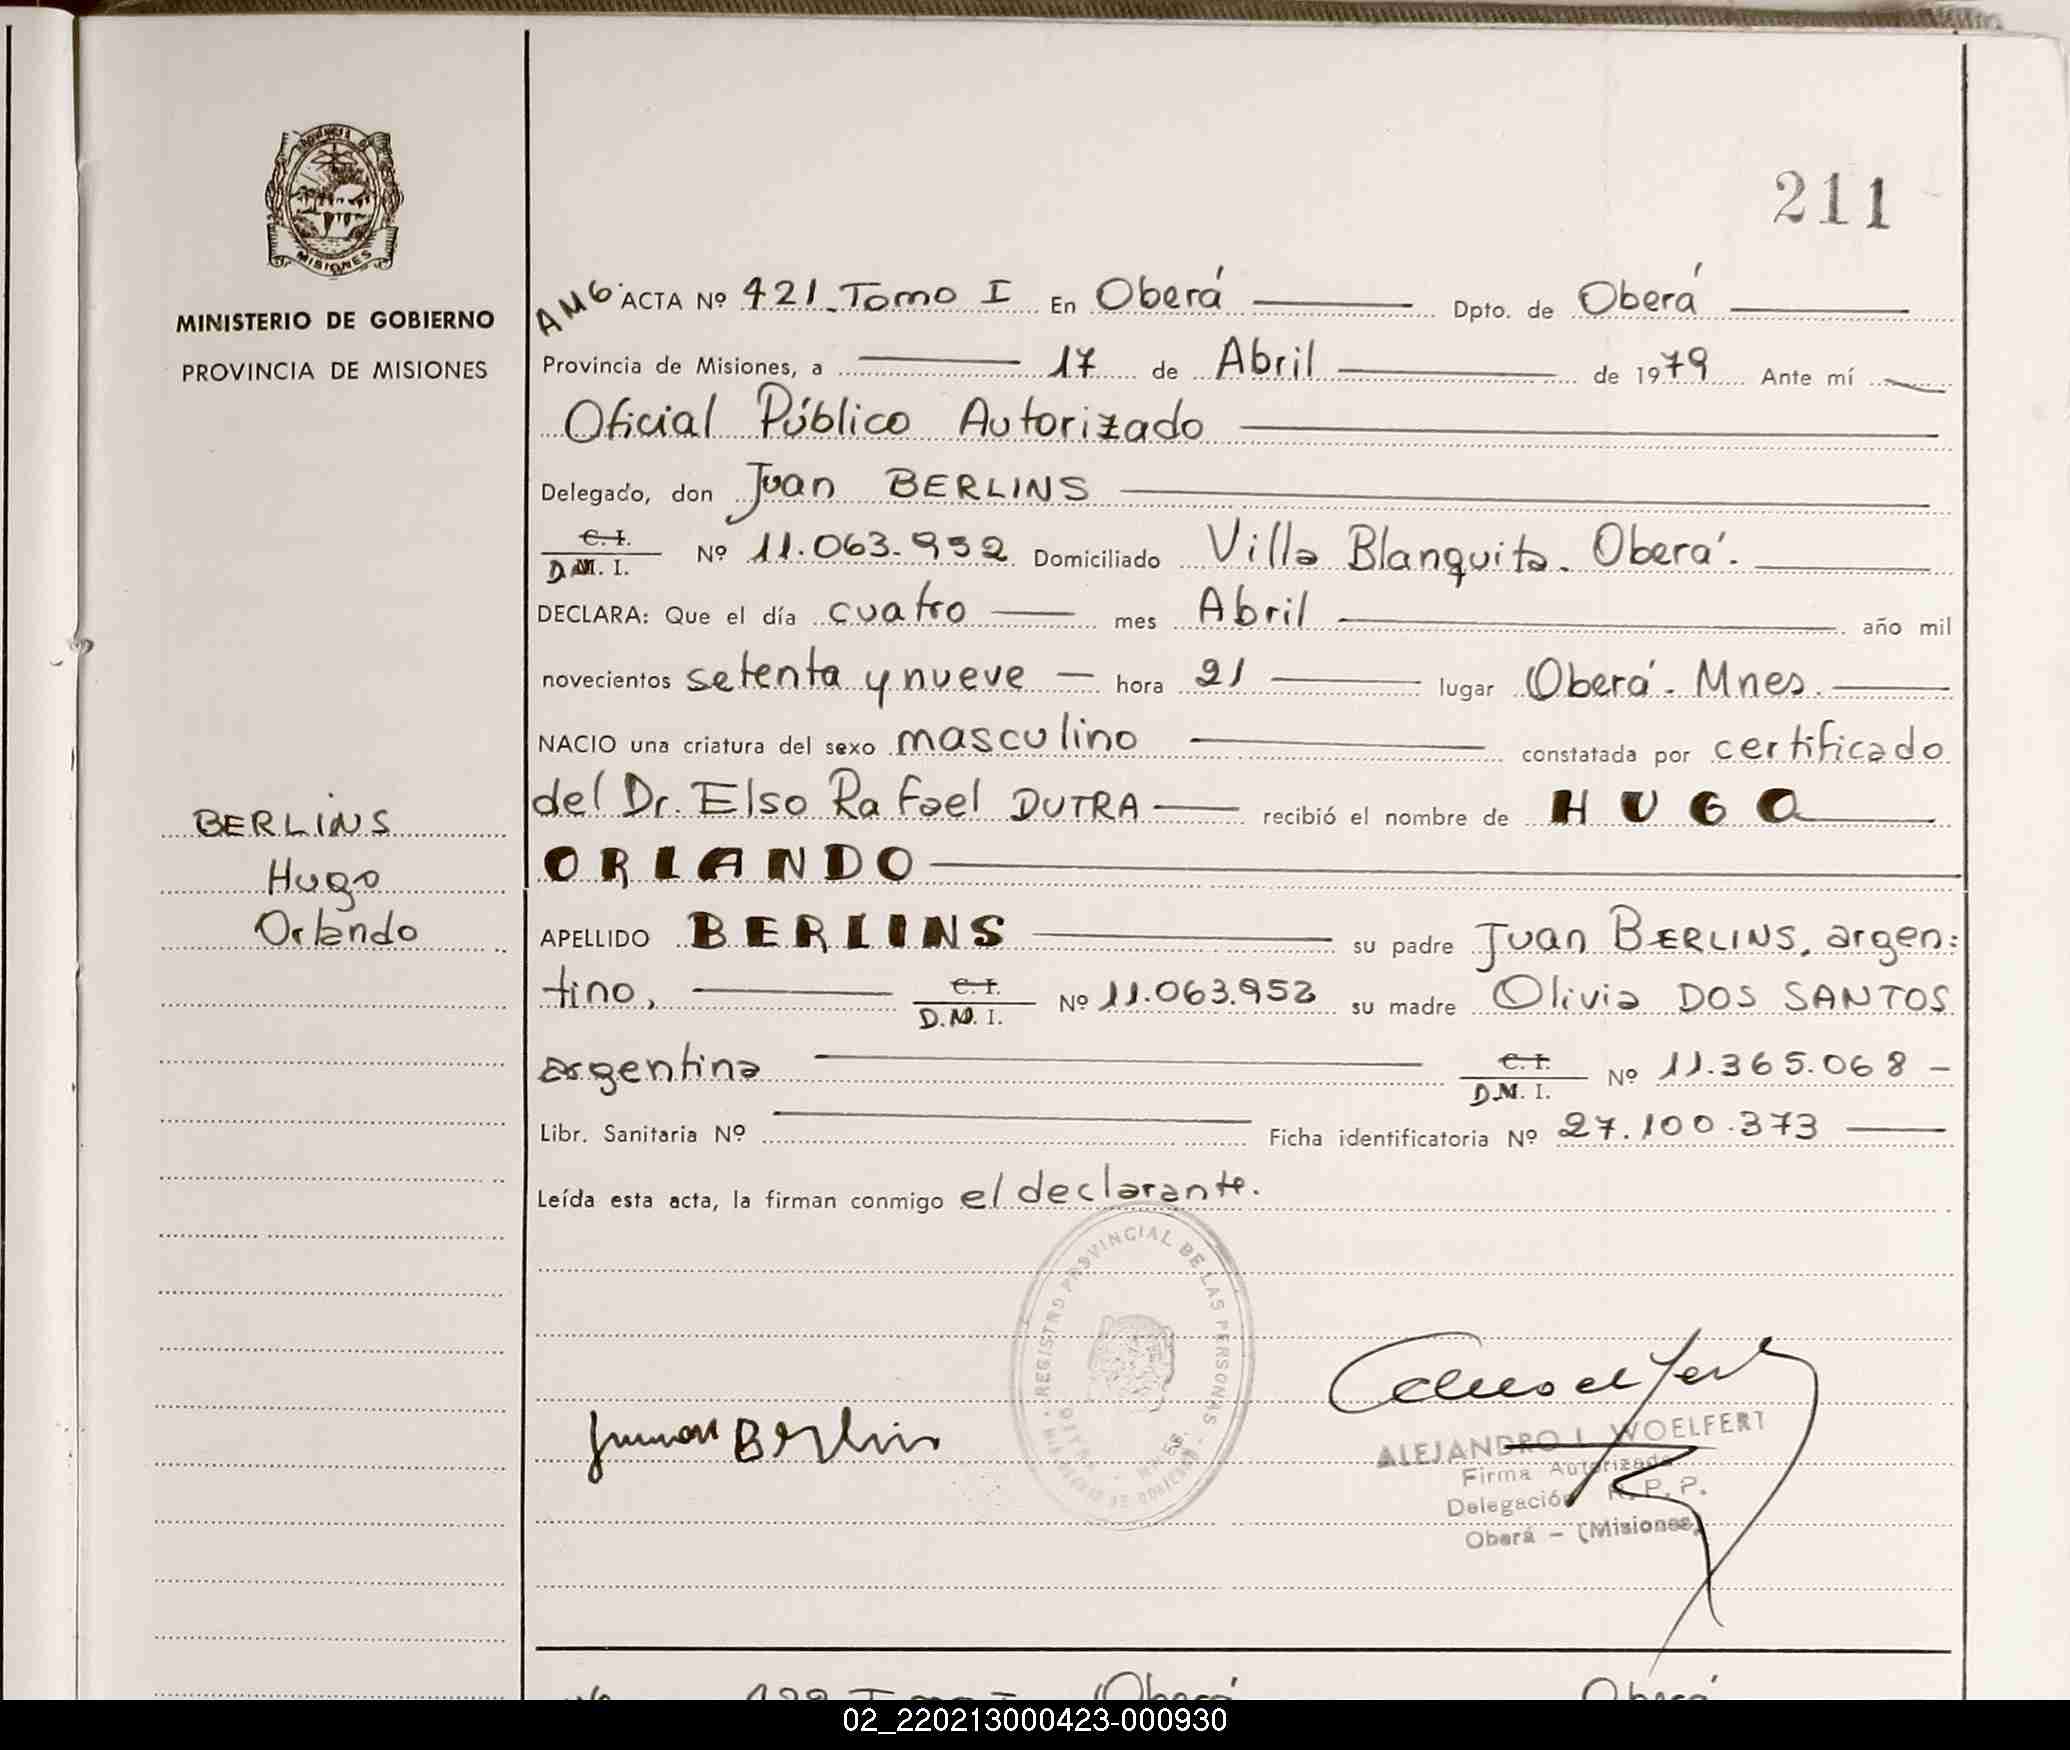 PROVINCIA DE
MISIONES
MINISTERIO DE GOBIERNO
PROVINCIA DE MISIONES
BERLINS
Hugo
Orlando
211
AMG. ACTA Nº 421. Tomo I En Oberá Dpto. de Oberá
Provincia de Misiones, a 17 de Abril de 1979 Ante mí
Oficial Público Autorizado
Delegado, don Juan BERLINS
C. I.
D.M. I. Nº 11.063.952 Domiciliado Villa Blanquita. Oberá.
DECLARA: Que el día cuatro mes Abril año mil
novecientos setenta y nueve hora 21 lugar Oberá. Mnes.
NACIO una criatura del sexo masculino constatada por certificado
del Dr. Elso Rafael DUTRA recibió el nombre de HUGO
ORLANDO
APELLIDO BERLINS su padre Juan BERLINS, argen:
tino, C. I.
D.M. I. Nº 11.063.952 su madre Olivia DOS SANTOS
argentina C. I.
D.M. I. Nº 11.365.068 -
Libr. Sanitaria Nº Ficha identificatoria Nº 27.100.373
Leída esta acta, la firman conmigo el declarante.
REGISTRO PROVINCIAL DE LAS PERSONAS
Juan Berlin
ALEJANDRO I. WOELFERT
Firma Autorizada
Delegación R. P. P.
Oberá - (Misiones)
422 Tomo I Oberá Oberá
02_220213000423-000930